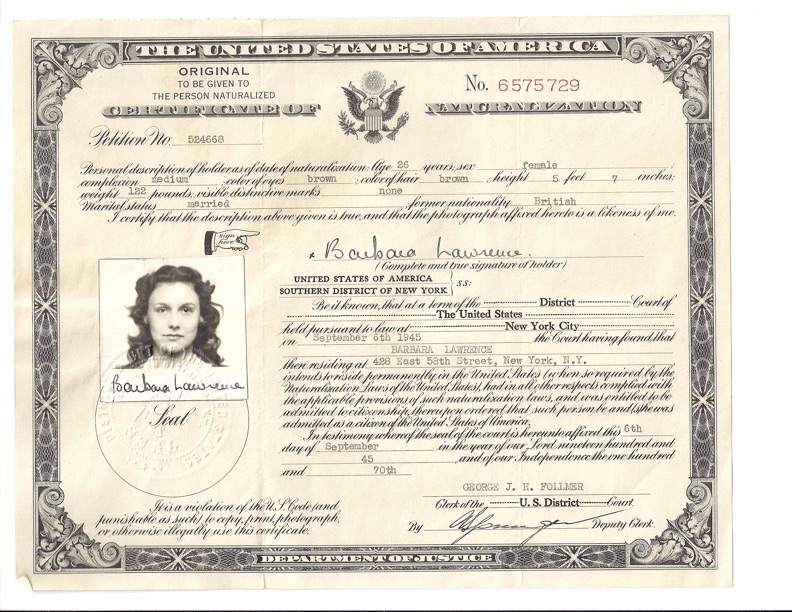 THE UNITED STATES OF AMERICA
ORIGINAL
TO BE GIVEN TO
THE PERSON NATURALIZED
No. 6575729
CERTIFICATE OF NATURALIZATION
Petition No. 524668
Personal description of holder as of date of naturalization: Age 26 years; sex female ;
complexion medium color of eyes brown ; color of hair brown ; height 5 feet 7 inches;
weight 122 pounds; visible distinctive marks none
Marital status married former nationality British
I certify that the description above given is true, and that the photograph affixed hereto is a likeness of me.
sign here
x Barbara Lawrence.
(Complete and true signature of holder)
UNITED STATES OF AMERICA
SOUTHERN DISTRICT OF NEW YORK } ss:
Be it known, that at a term of the District Court of
The United States
held pursuant to law at New York City
on September 6th 1945 the Court having found that
BARBARA LAWRENCE
then residing at 428 East 58th Street, New York, N.Y.
intends to reside permanently in the United States (when so required by the
Naturalization Laws of the United States), had in all other respects complied with
the applicable provisions of such naturalization laws, and was entitled to be
admitted to citizenship, thereupon ordered that such person be and (s)he was
admitted as a citizen of the United States of America.
In testimony whereof the seal of the court is hereunto affixed this 6th
day of September in the year of our Lord nineteen hundred and
45 and of our Independence the one hundred
and 70th
Barbara Lawrence
Seal
GEORGE J. H. FOLLMER
Clerk of the U. S. District Court.
By Deputy Clerk.
It is a violation of the U.S. Code (and
punishable as such) to copy, print, photograph,
or otherwise illegally use this certificate.
DEPARTMENT OF JUSTICE